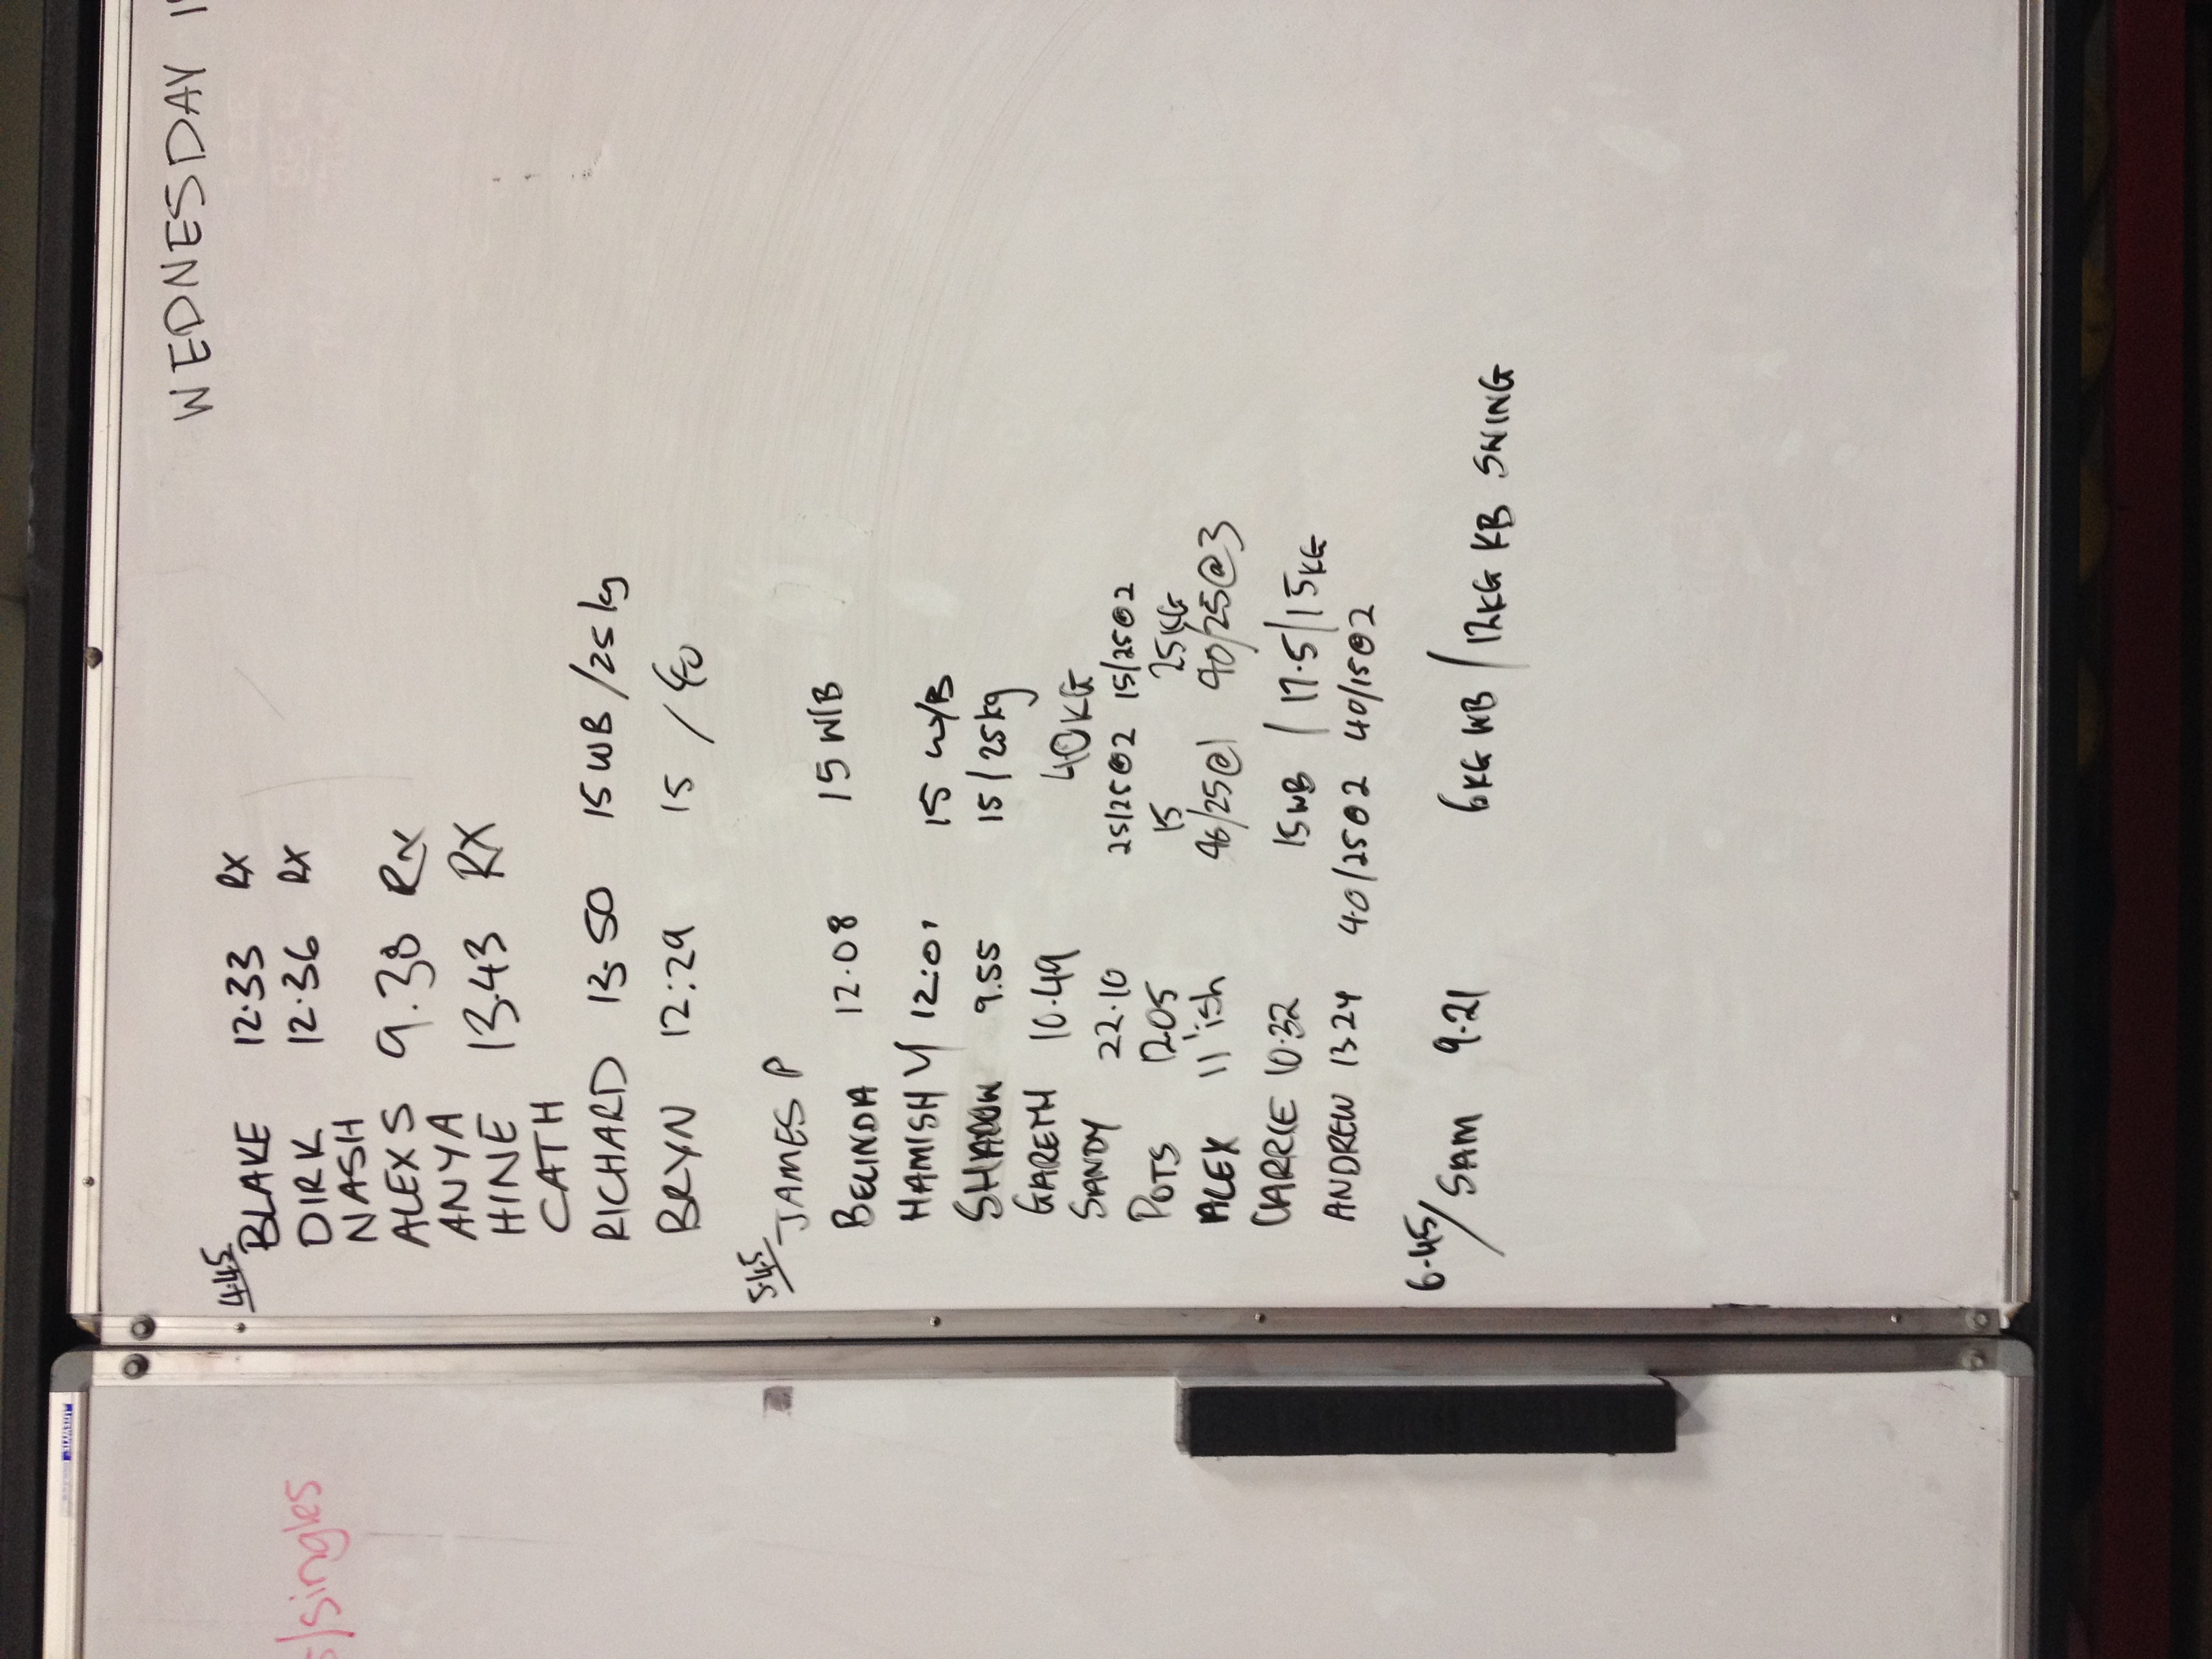 WEDNESDAY
4.45
BLAKE 12.33 RX
DIRK 12.36 RX
NASH
ALEX S 9.38 Rx
ANYA
HINE 13.43 RX
CATH
RICHARD 13.50 15 WB / 25 kg
BRYN 12:29 15 / 40
5.45
JAMES P
BELINDA 12.08 15 W/B
HAMISH Y 12:01 15 W/B
SHADOW 9.55 15 / 25 kg
GARETH 10.49 40KG
SANDY 22.10 25/25@2 15/25@2
POTS 12.05 15 25KG
ALEX 11'ish 46/25@1 40/25@3
CARRIE 10:32 15 WB / 17.5/15KG
ANDREW 13.24 40/25@2 40/15@2
6.45/ SAM 9.21 6KG WB / 12KG KB SWING
/singles